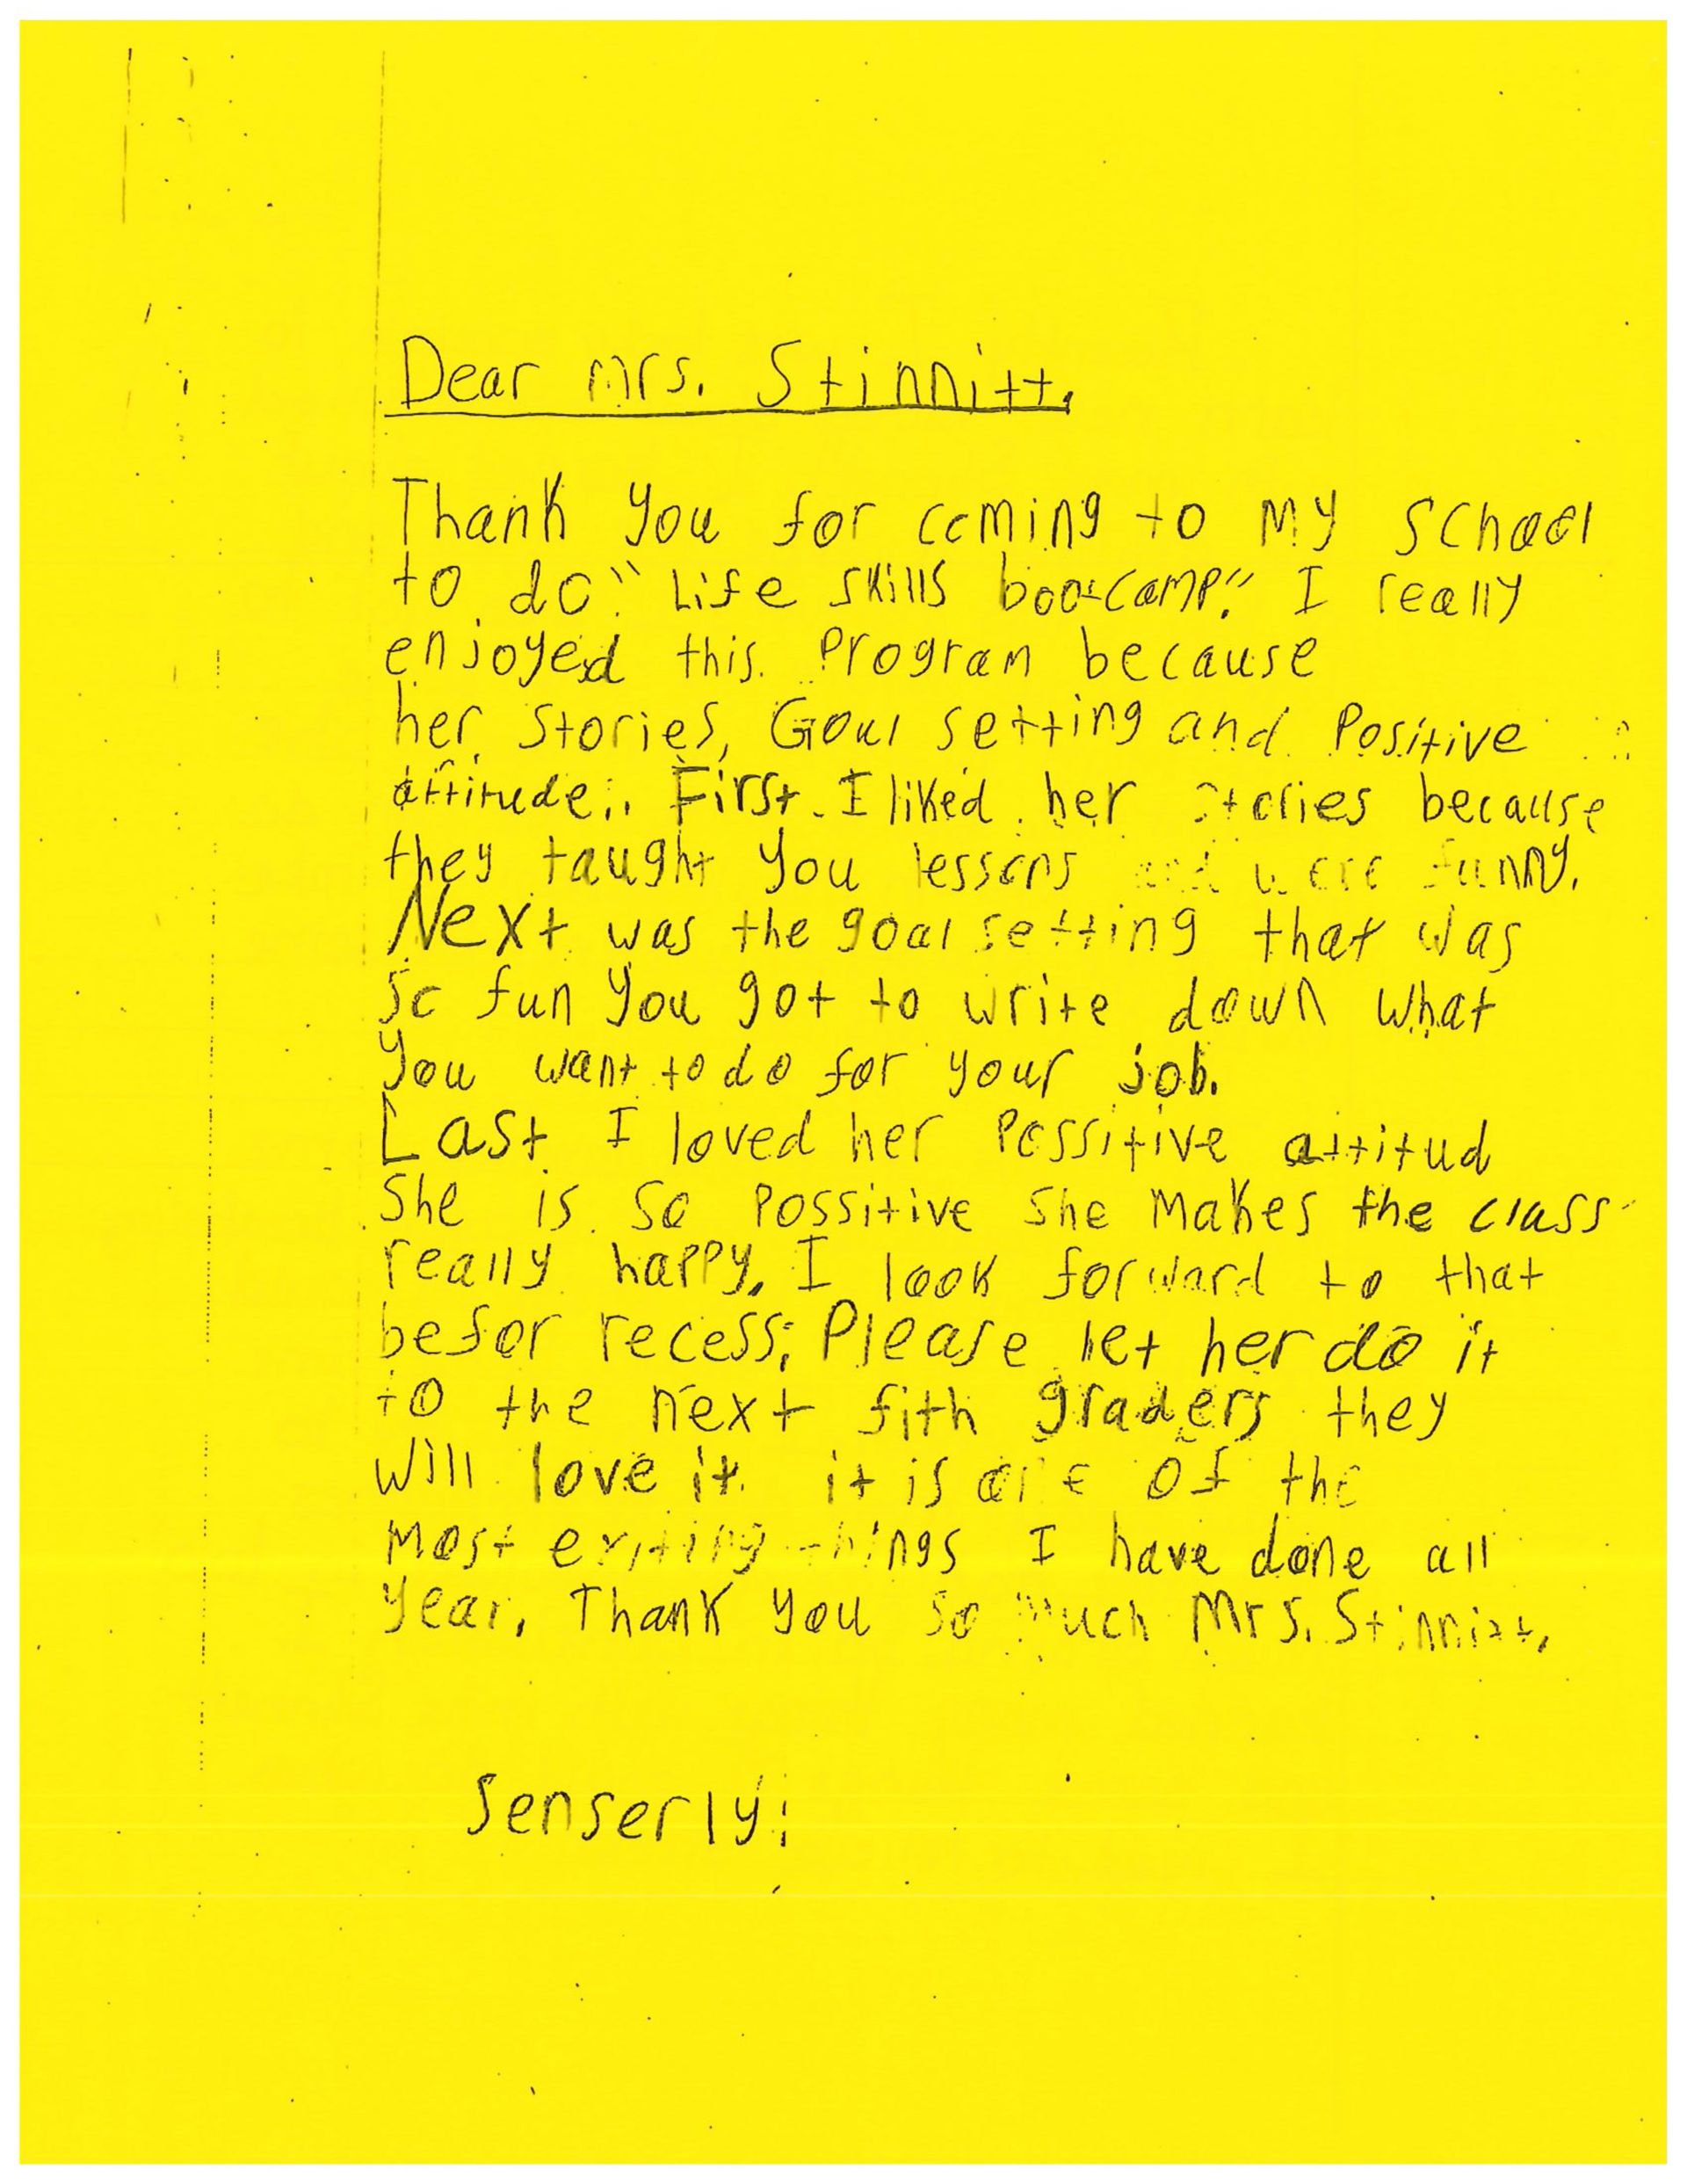 Dear Mrs. Stinnitt,
Thank you for coming to my school
to do "Life skills bootcamp." I really
enjoyed this program because
her stories, Goal setting and Positive
attitude. First I liked her stories because
they taught you lessons and were funny.
Next was the goal setting that was
so fun you got to write down what
you want to do for your job.
Last I loved her possitive attitud
She is so possitive she makes the class
really happy. I look forward to that
befor recess. Please let her do it
to the next fith graders they
will love it. it is one of the
most exiting things I have done all
year. Thank you so much Mrs. Stinnitt.
Senserly,